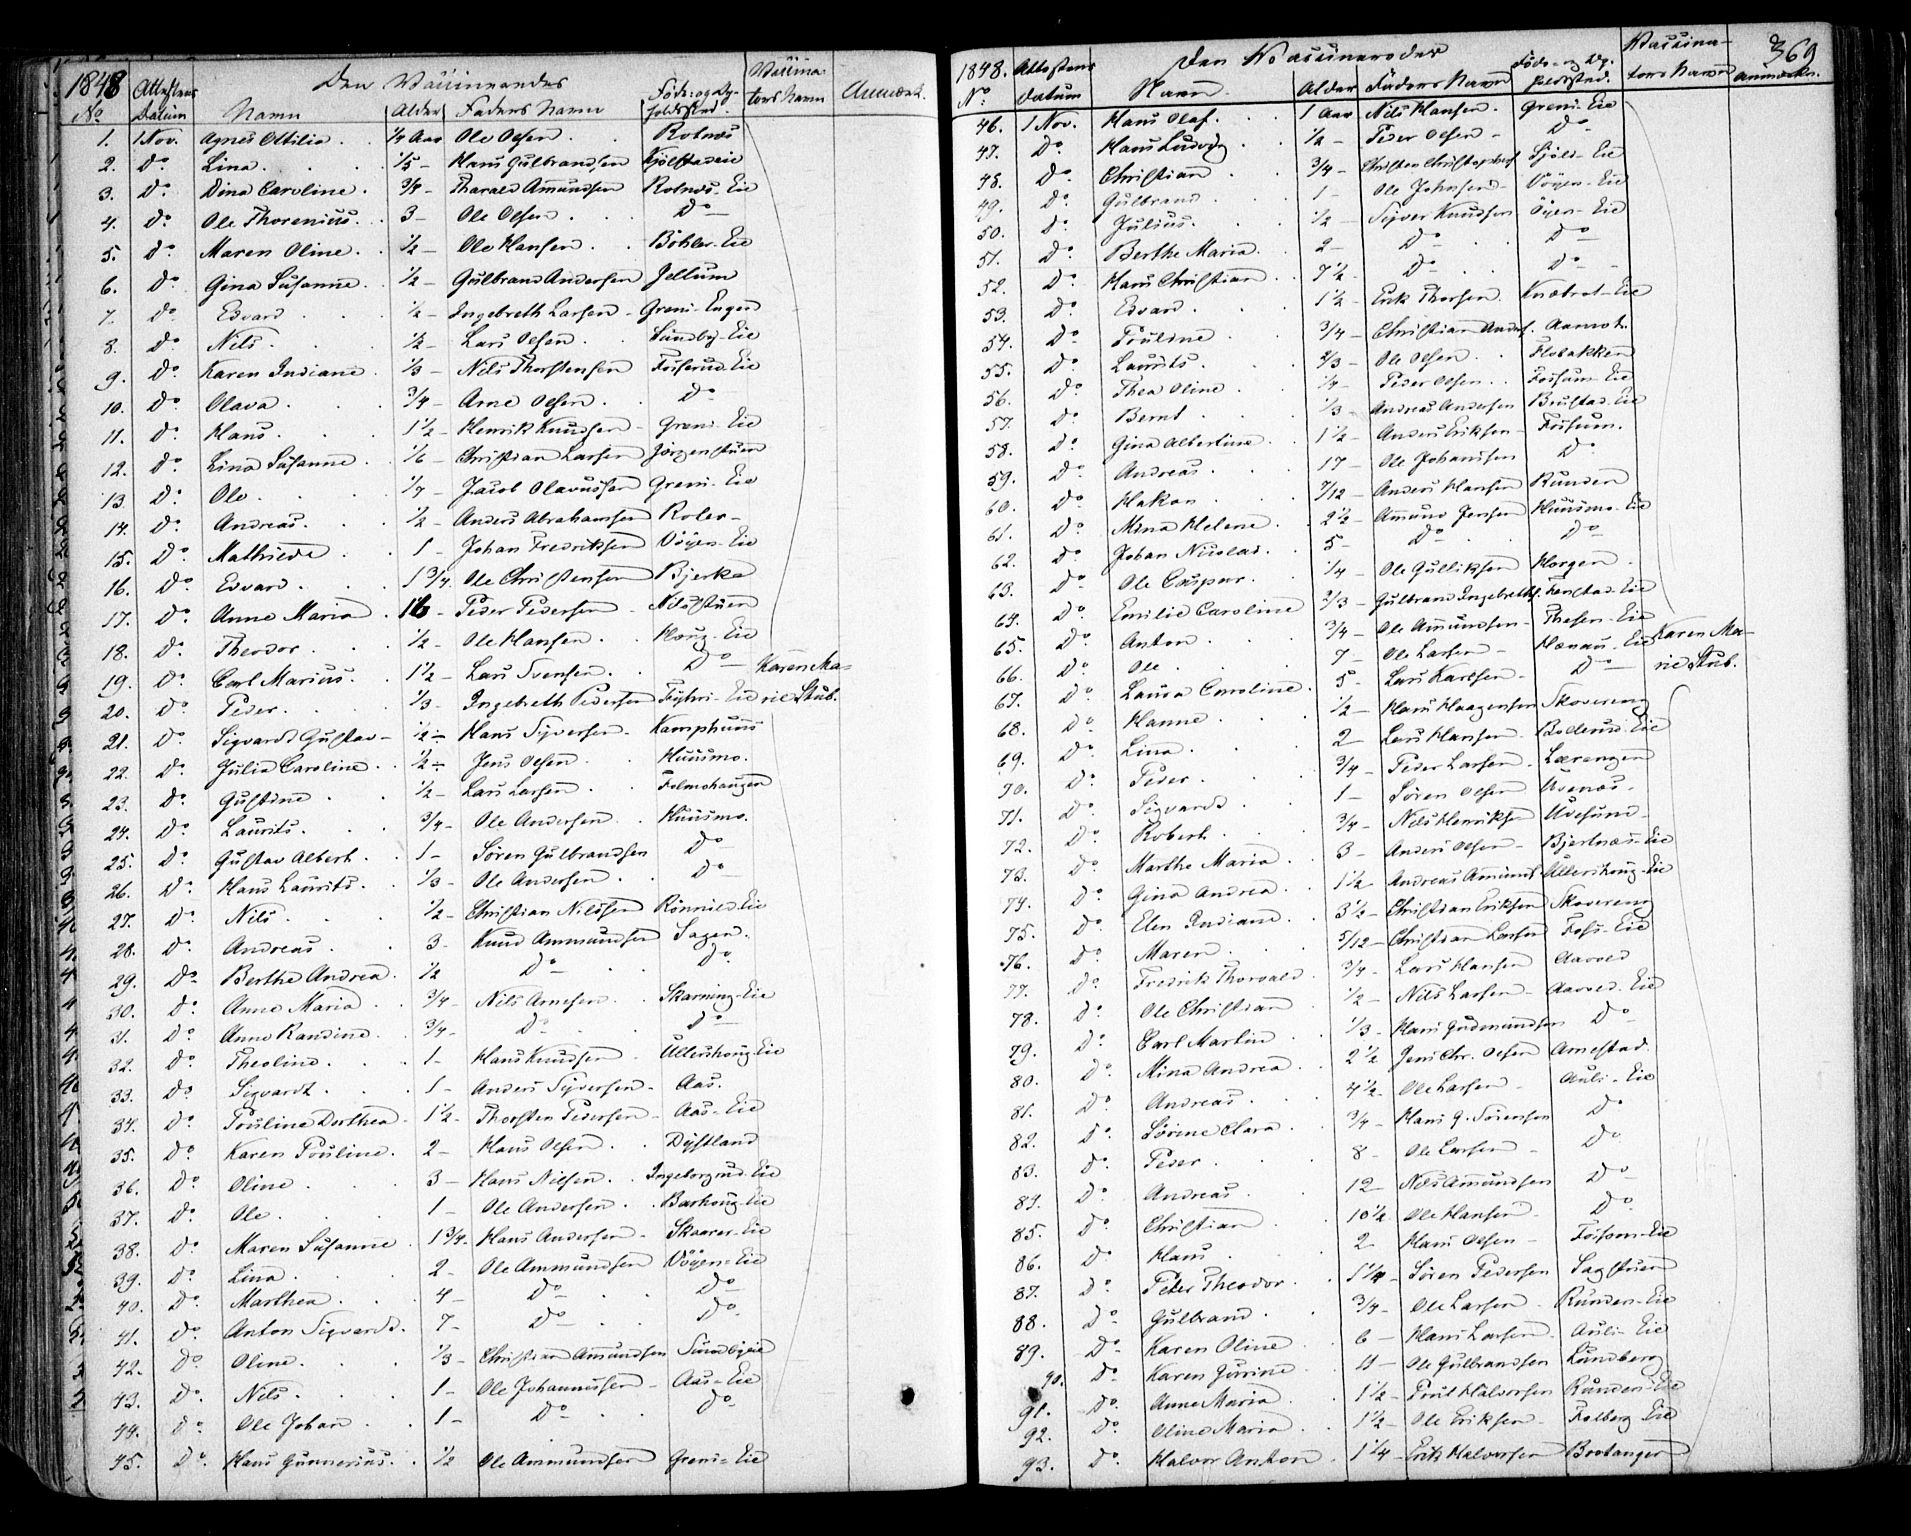 1848 Attestens Den Vaccineredes Føde- og Op- Vaccina- Anmærk.
No Datum Navn Alder Faders Navn holdssted. tors Navn
1. 1 Nov. Agnes Ottilia . . 1/4 Aar Ole Olsen . Rotnæs
2. Do. Lina . . . 1/5 - Hans Gulbrandsen Kjølstadeie
3. Do. Dina Caroline . 3/4 - Tharald Amundsen Rotnæs-Eie
4. Do. Ole Thorenius . . 3 - Ole Olsen . . Do -
5. Do. Maren Oline . . 1/2 - Ole Hansen . . Böhler-Eie
6. Do. Gina Susanne . 1/2 - Gulbrand Andersen Jellum
7. Do. Edvard . . 1/2 - Ingebreth Larsen - Greni-Engen
8. Do. Nils . . . 1/2 - Lars Olsen . . Sundby-Eie
9. Do. Karen Indiane . 1/3 - Nils Thorstensen Fosserud-Eie
10. Do. Olava . . . 3/4 - Arne Olsen . . Do -
11. Do. Hans . . . 1 1/2 - Henrik Knudsen - Greni-Eie
12. Do. Lina Susanne . 1/6 - Christian Larsen Jörgenstuen
13. Do. Ole . . . 1/7 - Jacob Olavussen Greni-Eie
14. Do. Andreas . . . 1/2 - Anders Abrahamsen Roler -
15. Do. Mathilde . . 1 - Johan Fredriksen Vöyen-Eie
16. Do. Edvard . . . 1 3/4. Ole Christensen Bjerke
17. Do. Anne Maria . 16 - Peder Pedersen - Nilsstuen
18. Do. Theodor . . . 1/2 - Ole Hansen . . Houg-Eie
19. Do. Carl Marius . . 1 1/2 - Lars Svensen . . Do - Karen Ma-
20. Do. Peder . . . 1/3 - Ingebreth Pedersen Fyhri-Eie rie Stub.
21. Do. Sigvardt Gustav - 1/2 - Hans Syversen . Kamphuus
22. Do. Julia Caroline . . 1/2 - Jens Olsen . . Huusmo.
23. Do. Gustine . . 1/2 - Lars Larsen . . Folmohaugen
24. Do. Laurits . . . 3/4 - Ole Andersen . Huusmo.
25. Do. Gustav Albert . . 1 - Sören Gulbrandsen Do -
26. Do. Hans Laurits . . 1/3 - Ole Andersen . . Do -
27. Do. Nils . . . 1/2 - Christian Nilssen Rönnild-Eie
28. Do. Andreas . . 3 - Knud Ammundsen Sagen.
29. Do. Berthe Andrea . 1/2 Do - . . Do.
30. Do. Anne Maria . . 3/4 - Nils Arnesen . Skarning-Eie
31. Do. Anne Randine . 3/4 - Do - . . Do -
32. Do. Theoline . . . 1 - Hans Knudsen - Ullershoug-Eie
33. Do. Sigvardt . . . 1 - Anders Syversen - Aas.
34. Do. Pouline Dorthea . 1 1/2 - Thorsten Pedersen - Aas-Eie
35. Do. Karen Pouline . 2 - Hans Olsen . . Dystland
36. Do. Oline . . . 3 - Hans Nilsen . . Ingeborgrud-Eie
37. Do. Ole . . . 1 - Ole Andersen . . Barhoug-Eie
38. Do. Maren Susanne . 1 3/4. Hans Andersen . Skaarer-Eie
39. Do. Lina . . . 2 - Ole Ammundsen Vöyen-Eie
40. Do. Marthea . . . 4 - Do - . . Do -
41. Do. Anton Sigvardt . 7 - Do - . . Do -
42. Do. Oline . . . 1/3 - Christian Amundsen Sundbyeie
43. Do. Nils . . . 1 - Ole Johannessen - Aas-Eie
44. Do. Ole Johan . . 1 - Do - . . Do -
45. Do. Hans Gunnerius . . 1/2 Ole Ammundsen Greni-Eie
1848. Attestens Den Vaccineredes Føde- og Op- Vaccina- 369
No Datum Navn Alder Faders Navn holdssted. tors Navn Anmærkn.
46. 1 Nov. Hans Olaf . . . 1 Aar Nils Hansen . Greni-Eie
47. Do. Hans Ludvig . . 1/2 - Peder Olsen - Do -
48. Do. Christian . . 3/4 - Christen Christophers. Kjöls-Eie
49. Do. Gulbrand . . . 1 - Ole Johnsen - Vöyen-Eie
50. Do. Julius . . . 1/2 - Syver Knudsen Öyen-Eie
51. Do. Berthe Maria . . 2 - Do - . Do -
52. Do. Hans Christian . . 7 1/2 - Do - . Do -
53. Do. Edvard . . . 1 1/2 - Erik Thorsen . Knæbrot-Eie
54. Do. Pouline . . . 3/4 - Christian Anders. Aamot.
55. Do. Laurits . . . 2/3 - Ole Olsen . . Flobakken
56. Do. Thea Oline . . 1/4 - Peder Olsen . . Fossum-Eie
57. Do. Bernt . . . 1/3 - Andreas Andersen Brustad-Eie
58. Do. Gina Albertine . . 1 1/2 - Anders Eriksen - Fossum.
59. Do. Andreas . . . 17 - Ole Johansen Do -
60. Do. Hakon . . . 7/12 - Anders Hansen Runden
61. Do. Mina Helene . . 2 1/2 - Amund Jensen Huusmo-Eie
62. Do. Johan Nicolai . . 5 - Do - . Do -
63. Do. Ole Casper . . . 1/4 - Ole Gulliksen Horgen
64. Do. Emilie Caroline 2/3 - Gulbrand Ingebreths. Fonstad-Eie
65. Do. Anton . . . 3/4 - Ole Amundsen - Thesen-Eie
66. Do. Ole . . . 7 - Ole Larsen - Hænau-Eie Karen Ma-
67. Do. Laura Caroline . 5 - Lars Karlsen . Do - rie Stub.
68. Do. Hanne . . . 1/2 - Hans Haagensen Skovereng
69. Do. Lina . . . 2 - Lars Hansen . Bollerud-Eie
70. Do. Peder . . . 3/4 - Peder Larsen . Lærengen
71. Do. Sigvardt . . 1 - Sören Olsen Uvenæs .
72. Do. Robert . . . 3/4 - Nils Henriksen Uvesund
73. Do. Marthe Maria . . 3 - Anders Olsen - Bjertnæs-Eie
74. Do. Gina Andrea . . 1 1/2 Andreas Amunds. Ullershoug-Eie
75. Do. Elen Indiane . . 3 1/2 - Christian Eriksen Skovereng
76. Do. Maren . . . 5/12 - Christian Larsen Foss-Eie
77. Do. Fredrik Thorvald . 3/4 - Lars Hansen Aavold
78. Do. Ole Christian . 1/2 - Nils Larsen - Aavold-Eie
79. Do. Carl Martin . . 1/3 - Hans Gudmundsen Do -
80. Do. Mina Andrea . . 2 1/2 Jens Chr. Olsen Arnestad.
81. Do. Andreas . . . 4 1/2 - Ole Larsen - Auli-Eie
82. Do. Sörine Clara . . 3/4 - Hans G. Sörensen Do
83. Do. Peder . . . 8 - Ole Larsen - Do
84. Do. Andreas . . 12 - Nils Amundsen Do -
85. Do. Christian . . . 10 1/2 Ole Hansen . Do.
86. Do. Hans . . . 2 - Hans Olsen - Fossum-Eie
87. Do. Peter Theodor . . 1 1/4 - Sören Pedersen Sagstuen
88. Do. Gulbrand . . 3/4 - Ole Larsen - Runden-Eie
89. Do. Karen Oline . . 6 - Hans Larsen - Auli-Eie
90. Do. Karen Gurine . . 11 - Ole Gulbrandsen Lundberg
91. Do. Anne Maria . . 1 1/2 - Poul Halvorsen Runden-Eie
92. Do. Oline Maria . . 1 1/2 - Ole Eriksen - Folberg-Eie
93. Do. Halvor Anton . 1 1/4 - Erik Halvorsen Brotangen